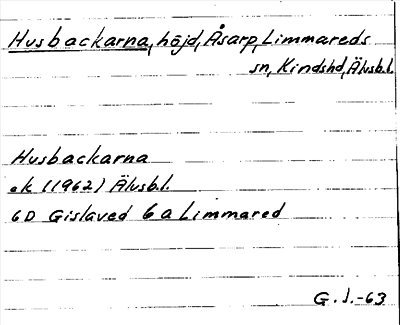 Husbackarna, höjd, Åsarp, Limmareds
sn, Kindshd, Älvsb.l.
Husbackarna
ek (1962) Älvsb.l.
6D Gislaved 6a Limmared
G.J.-63